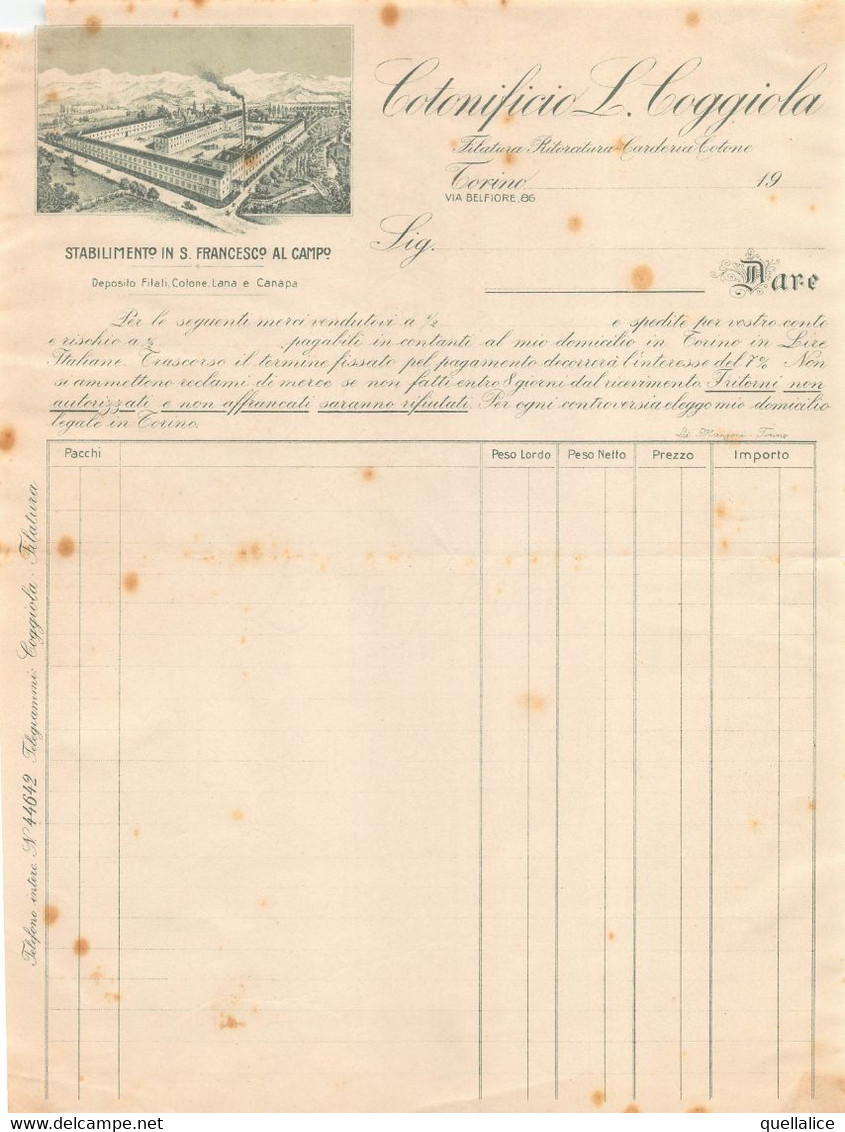 Cotonificio L. Coggiola
Filatura Ritorcitura Carderia Cotone
Torino 19
VIA BELFIORE, 86
STABILIMENTO IN S. FRANCESCO AL CAMPO
Sig.
Deposito Filati, Cotone, Lana e Canapa
Dare
Per le seguenti merci vendutevi a ½ e spedite per vostro conto
e rischio a ½ , pagabili in contanti al mio domicilio in Torino in Lire
Italiane. Trascorso il termine fissato pel pagamento decorrerà l'interesse del 7% Non
si ammettono reclami di merce se non fatti entro 8 giorni dal ricevimento. I ritorni non
autorizzati e non affrancati saranno rifiutati. Per ogni controversia eleggo mio domicilio
legale in Torino.
Torino
Pacchi Peso Lordo Peso Netto Prezzo Importo
Telefono interc. N° 44642 Telegrammi: Coggiola - Filatura
delcampe.net
quellalice